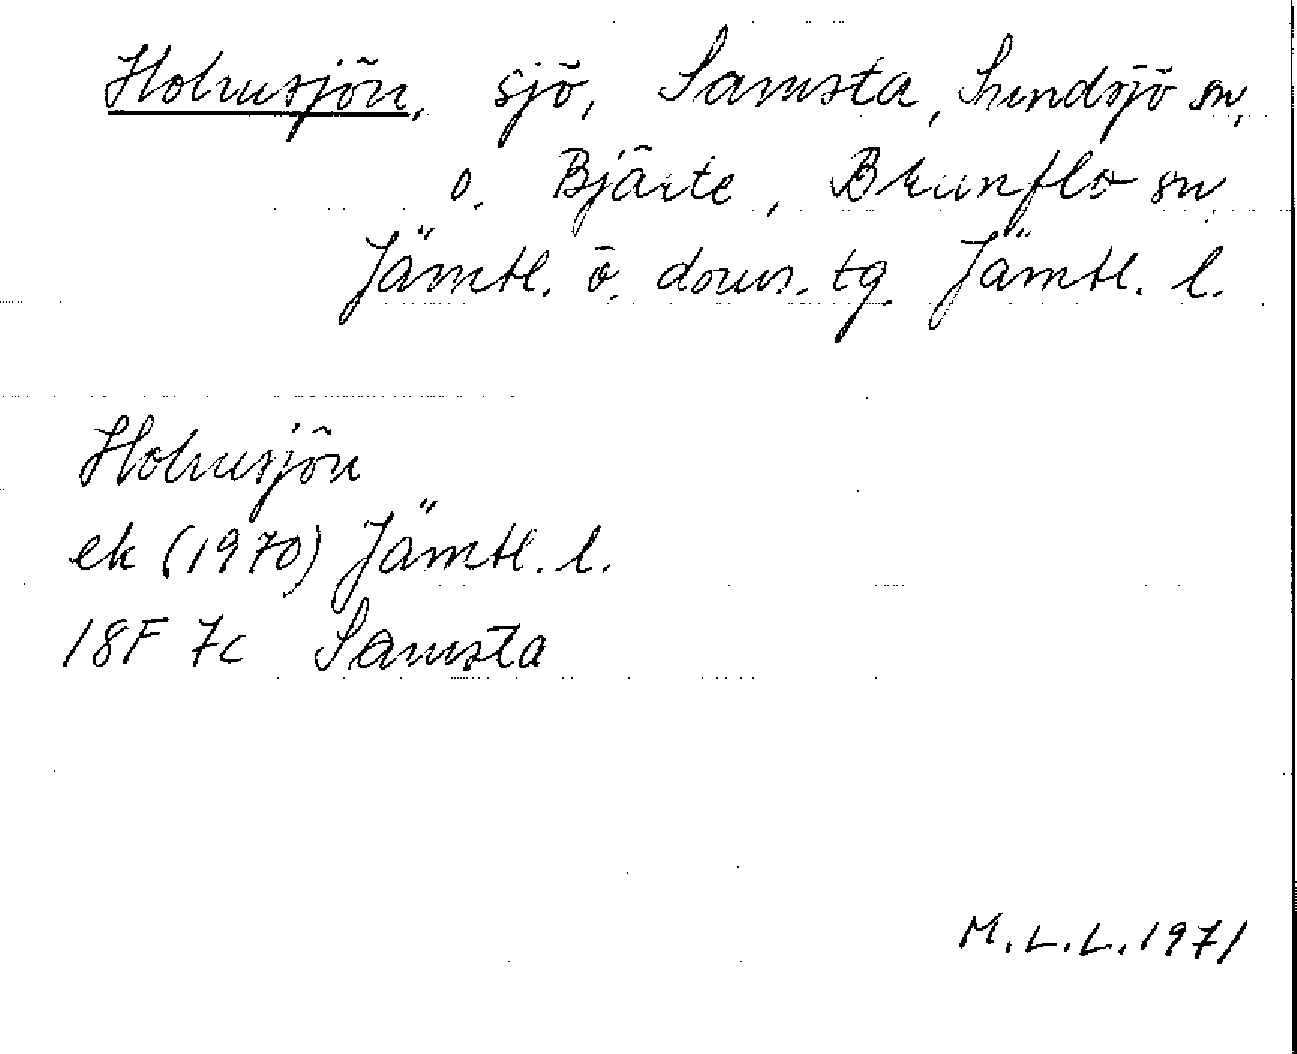 Holmsjön, sjö, Samsta, Sundsjö sn,
o. Bjärte, Brunflo sn
Jämtl. ö. doms. tg. Jämtl. l.
Holmsjön
ek (1970) Jämtl. l.
18F 7c Samsta
M.L.L. 1971